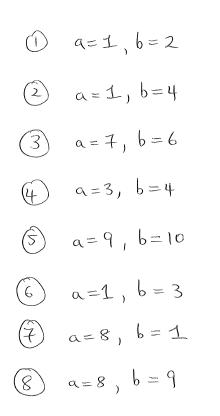 ① a=1, b=2
② a=1, b=4
③ a=7, b=6
④ a=3, b=4
⑤ a=9, b=10
⑥ a=1, b=3
⑦ a=8, b=1
⑧ a=8, b=9